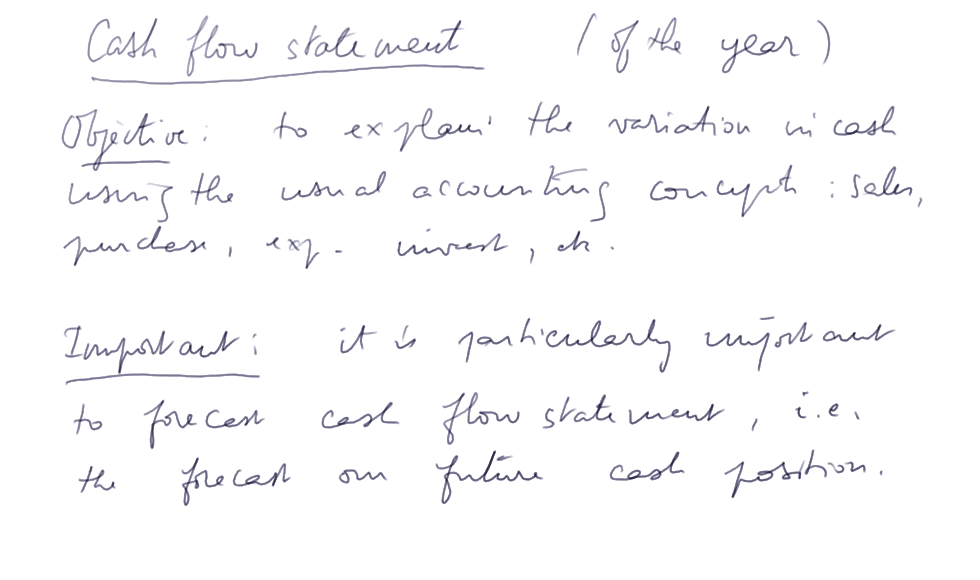 Cash flow statement (of the year)
Objective: to explain the variation in cash
using the usual accounting concepts: sales,
purchase, exp. invest, etc.
Important: it is particularly important
to forecast cash flow statement, i.e.
the forecast our future cash position.